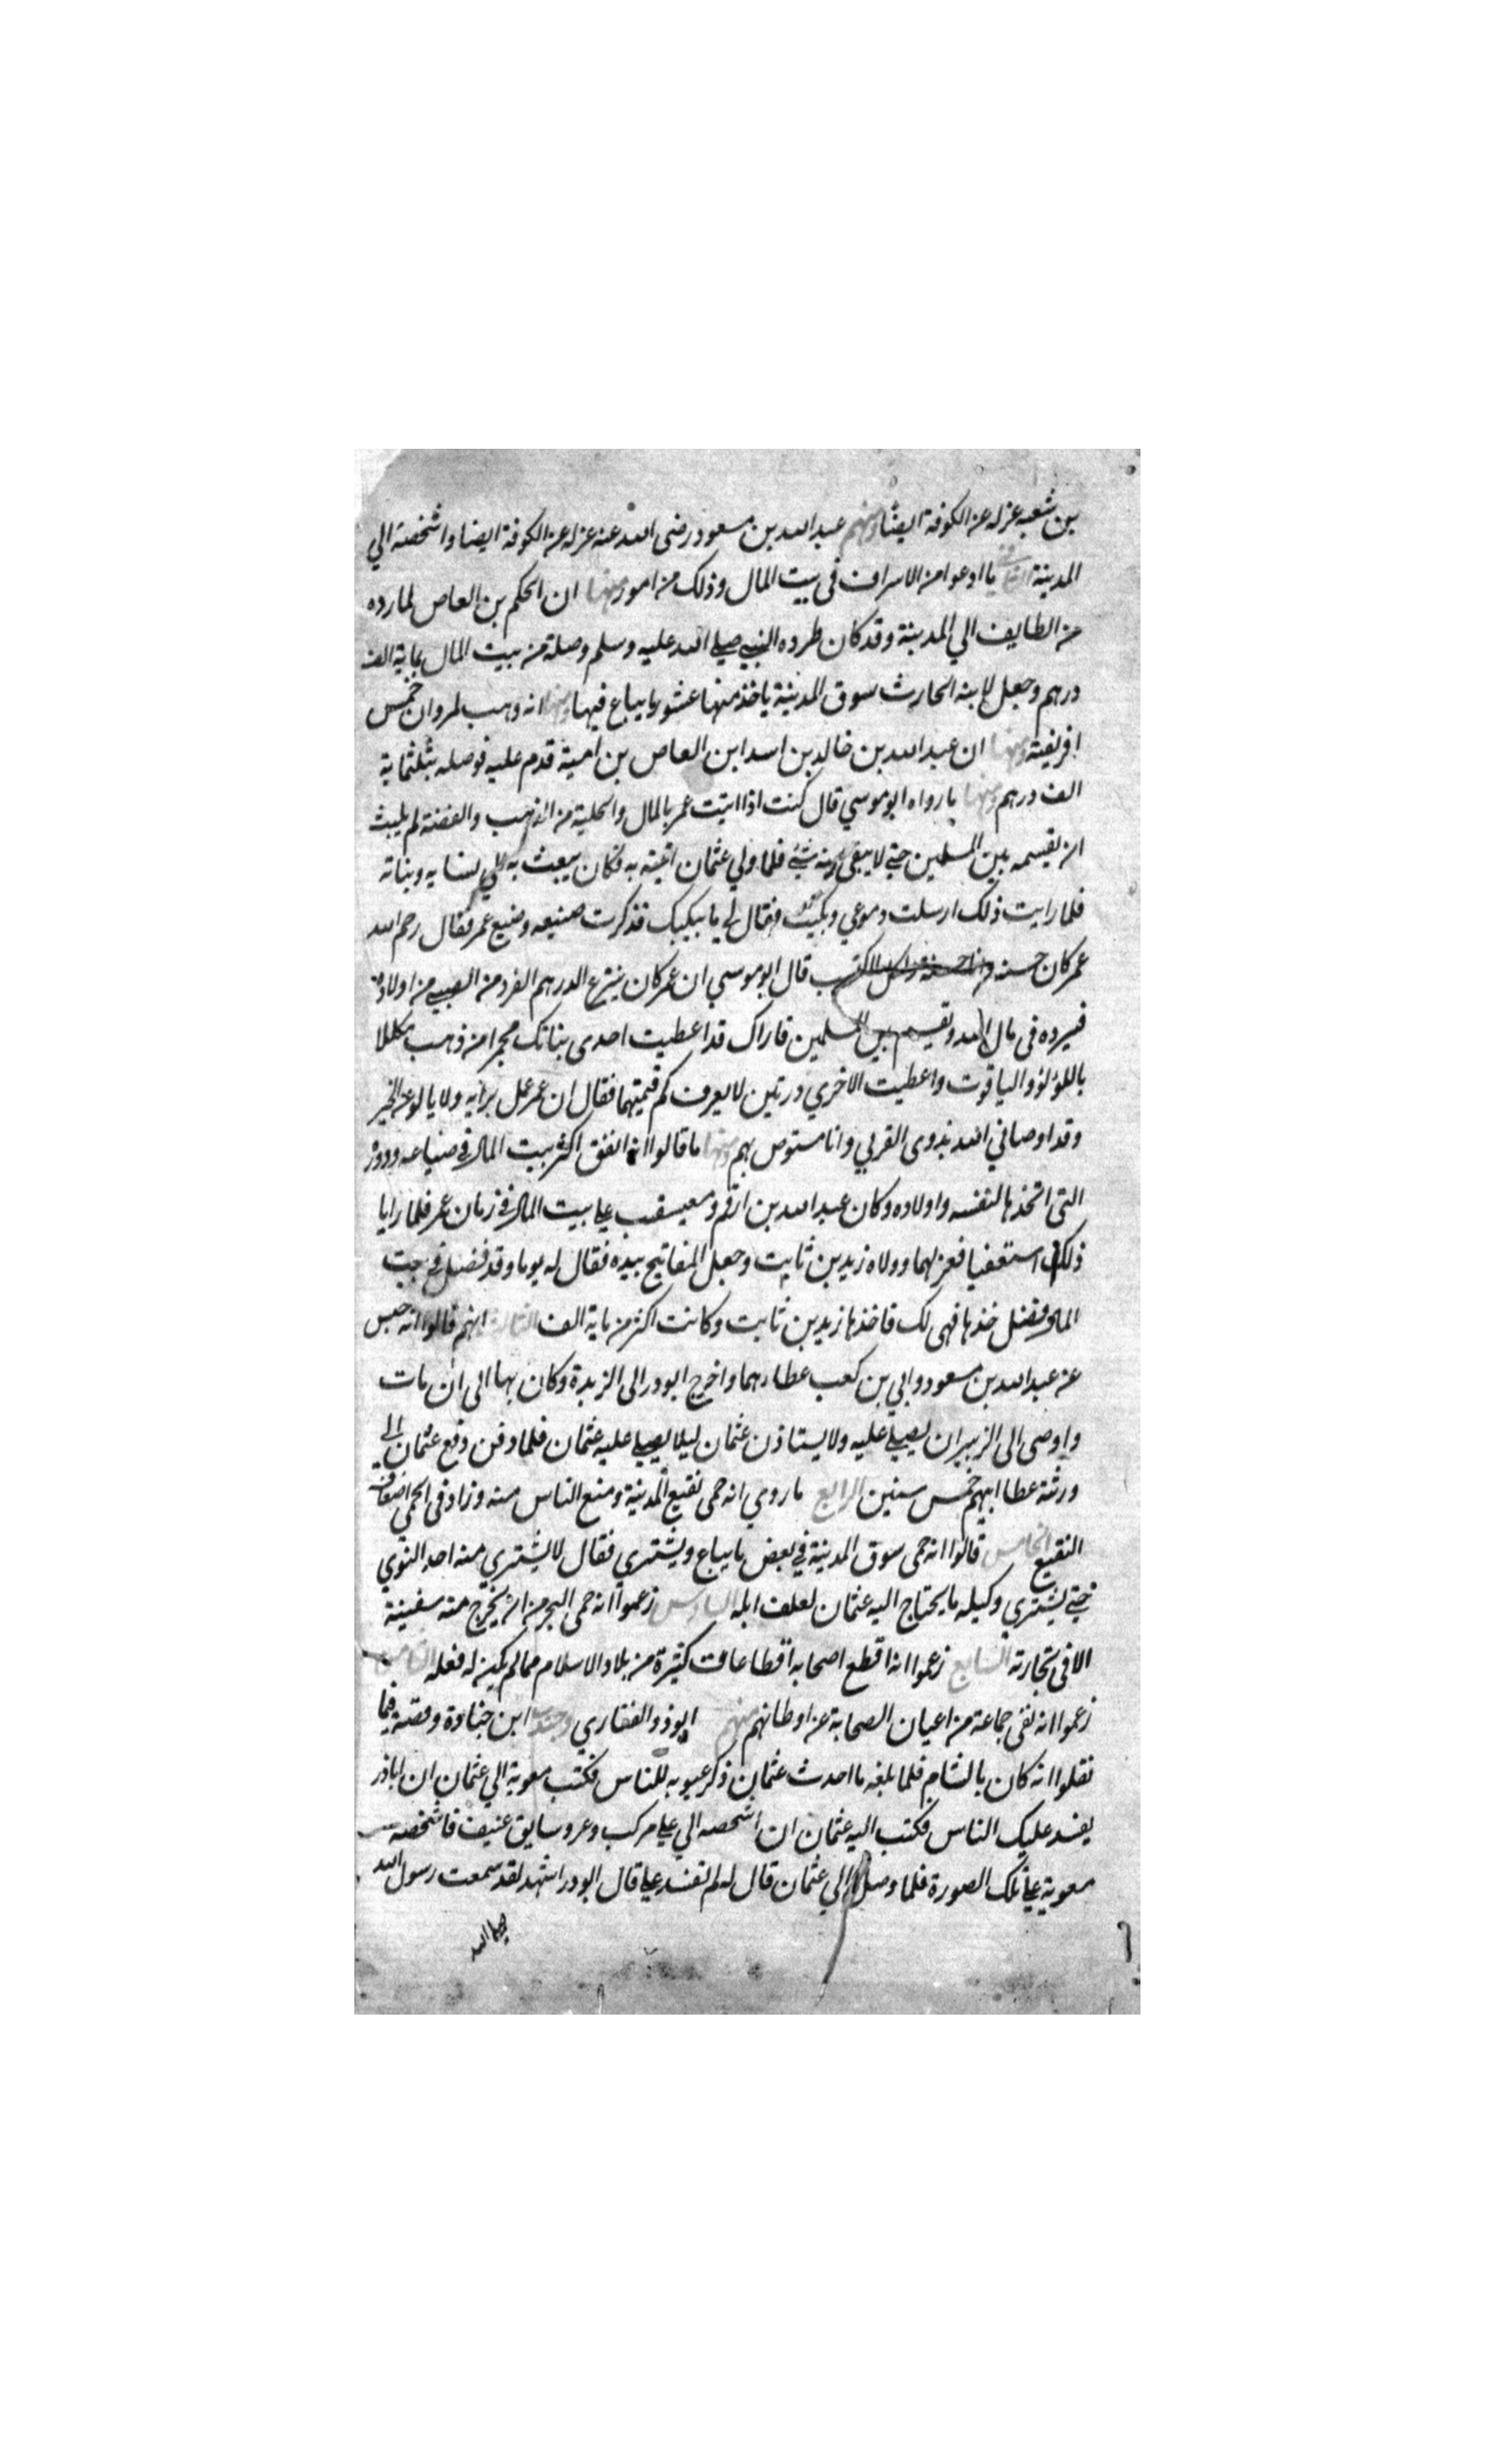 بن شعبه عزله عن الكوفة ايضا ومنهم عبد الله بن مسعود رضى الله عنه عزله عن الكوفة ايضا واشخصه الي
المدينة الثاني ما ادعوا من الاسراف فى بيت المال وذلك من امور منها ان الحكم بن العاص لما رده
من الطايف الي المدينة وقد كان طرده النبي صلي الله عليه وسلم وصله من بيت المال بماية الف
درهم وجعل لابنه الحارث سوق المدينة ياخذ منها عشور ما يباع فيها ومنها انه وهب لمروان خمس
افريقية ومنها ان عبد الله بن خالد بن اسد ابن العاص بن امية قدم عليه فوصله بثلثماية
الف درهم ومنها ما رواه ابو موسي قال كنت اذا اتيت عمر بالمال والحلية من الذهب والفضة لم يلبث
ان يقسمه بين المسلمين حتي لا يبقى منه شئ فلما ولي عثمان اتيته به فكان يبعث به الي نسايه وبناته
فلما رايت ذلك ارسلت دموعي وبكيت فقال لي ما يبكيك فذكرت صنيعه وصنيع عمر فقال رحم الله
عمر كان حسنه وانا حسنة ولكل ما اكتسب قال ابو موسي ان عمر كان ينتزع الدرهم الفرد من الصبي من اولاده
فيرده فى مال الله ويقسم بين المسلمين فاراك قد اعطيت احدى بناتك مجمرا من ذهب مكللا
باللؤلؤ والياقوت واعطيت الاخري درتين لا يعرف كم قيمتهما فقال ان عمر عمل برايه ولا يالو عن الخير
وقد اوصاني الله بذوى القربي وانا مستوص بهم ومنها ما قالوا انه انفق اكثر بيت المال في ضياعه ودوره
التي اتخذها لنفسه واولاده وكان عبد الله بن ارقم ومعيقيب علي بيت المال في زمان عمر فلما رايا
ذلك استعفيا فعزلهما وولاه زيد بن ثابت وجعل المفاتيح بيده فقال له يوما وقد فضل في بيت
المال فضل خذها فهى لك فاخذها زيد بن ثابت وكانت اكثر من ماية الف الثالث انهم قالوا انه حبس
عن عبد الله بن مسعود وابي بن كعب عطاءهما واخرج ابو در الى الزبدة وكان بها الى ان مات
واوصى الى الزبير ان يصلي عليه ولا يستاذن عثمان ليلا يصلي عليه عثمان فلما دفن دفع عثمان الي
ورثته عطا ابيهم خمس سنين الرابع ما روي انه حمى نقيع المدينة ومنع الناس منه وزاد فى الحمي اضعاف
النقيع الخامس قالوا انه حمى سوق المدينة في بعض ما يباع ويشتري فقال لا يشتري منه احد النوي
حتي يشتري وكيله ما يحتاج اليه عثمان لعلف ابله السادس زعموا انه حمى البحر من ان يخرج منه سفينة
الا فى تجارته السابع زعموا انه اقطع اصحابه اقطاعات كثيرة من بلاد الاسلام مما لم يكن له فعله الثامن
زعموا انه نفى جماعة من اعيان الصحابة عن اوطانهم منهم ابوذر الغفاري وجندب ابن جنادة وقصته فيما
نقلوا انه كان بالشام فلما بلغه ما احدث عثمان ذكر عيوبه للناس فكتب معوية الي عثمان ان اباذر
يفسد عليك الناس فكتب اليه عثمان ان اشخصه الي علي مركب وعر وسايق عنيف فاشخصه
معوية علي تلك الصورة فلما وصل الي عثمان قال له لم تفسد علي قال ابو در اشهد لقد سمعت رسول الله
صلي الله